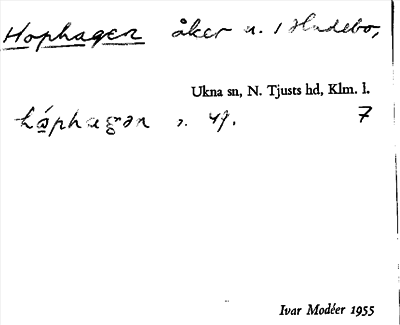 Hophagen åker u. 1 Hudebo,
Ukna sn, N. Tjusts hd, Klm. l.
7
Ivar Modéer 1955